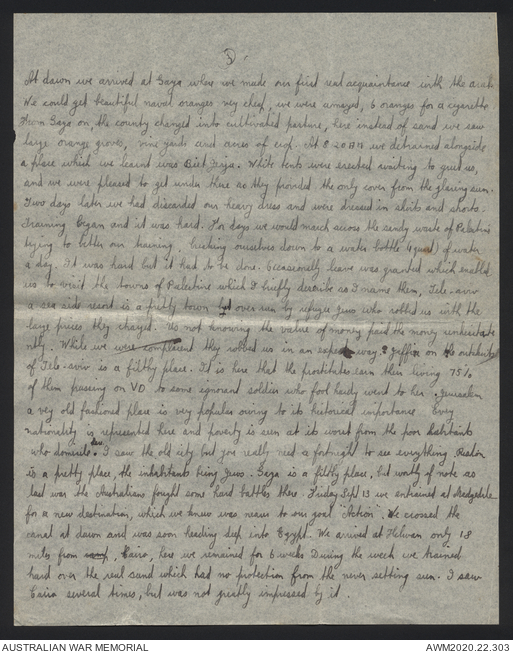 3.
At dawn we arrived at Gaza where we made our first real acquaintance with the arab
We could get beautiful naval oranges very cheap, we were amazed, 6 oranges for a cigarette
From Gaza on, the county changed into cultivated pasture, here instead of sand we saw
large orange groves, vine yards and acres of crop. At 8 20 AM we detrained alongside
a place which we learnt was Biet Jirga. White tents were erected waiting to greet us,
and we were pleased to get under there as they provided the only cover from the glaring sun.
Two days later we had discarded our heavy dress and were dressed in shirts and shorts.
Training began and it was hard. For days we would march across the sandy waste of Palestine
trying to better our training, breaking ourselves down to a water bottle (quart) of water
a day. It was hard but it had to be done. Occasionally leave was granted which enabled
us to visit the towns of Palestine which I briefly describe as I name them, Tele-aviv
a sea side resort is a pretty town but over run by refugee jews who robbed us with the
large prices they charged. Us not knowing the value of money paid the money reluctantly
ntly. While we were complacent they robbed us in an expert way. Jaffa on the outskirts
of Tele-aviv is a filthy place. It is here that the prostitutes earn their living 75%
of them passing on VD to some ignorant soldier who fool hardy went to her. Jerusalem
a very old fashioned place is very popular owing to its historical importance. Every
nationality is represented here and poverty is seen at its worst from the poor
who domicile here. I saw the old city but you really need a fortnight to see everything.
is a pretty place, the inhabitants being Jews. Gaza is a filthy place, but worthy of note as
last war the Australian fought some hard battles there. Friday Sept 13 we entrained at
for a new destination, which we knew was nearer to our goal "Action". We crossed the
canal at dawn and was soon heading deep into Egypt. We arrived at Helwan only 18
miles from Cairo, here we remained for 6 weeks During the week we trained
hard over the real sand which had no protection from the never setting sun. I saw
Cairo several times, but was not greatly impressed by it.
AUSTRALIAN WAR MEMORIAL
AWM2020.22.303